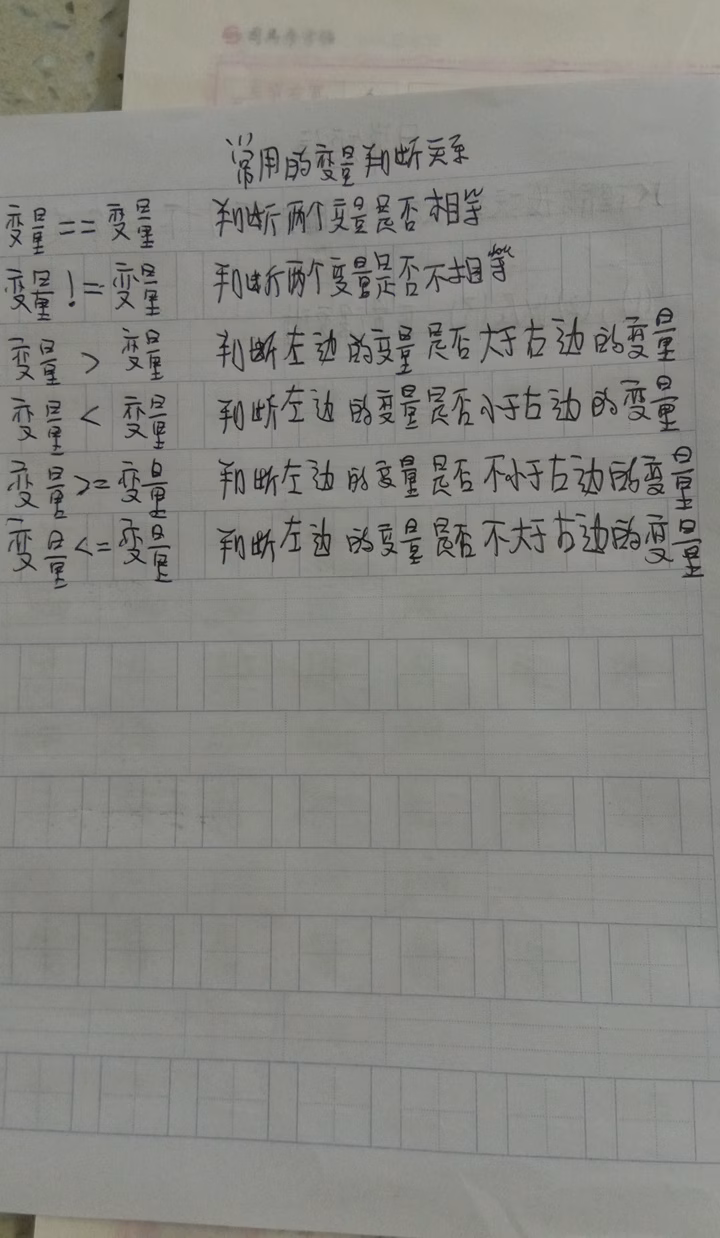 常用的变量判断关系
变量 == 变量 判断两个变量是否相等
变量 != 变量 判断两个变量是否不相等
变量 > 变量 判断左边的变量是否大于右边的变量
变量 < 变量 判断左边的变量是否小于右边的变量
变量 >= 变量 判断左边的变量是否不小于右边的变量
变量 <= 变量 判断左边的变量是否不大于右边的变量